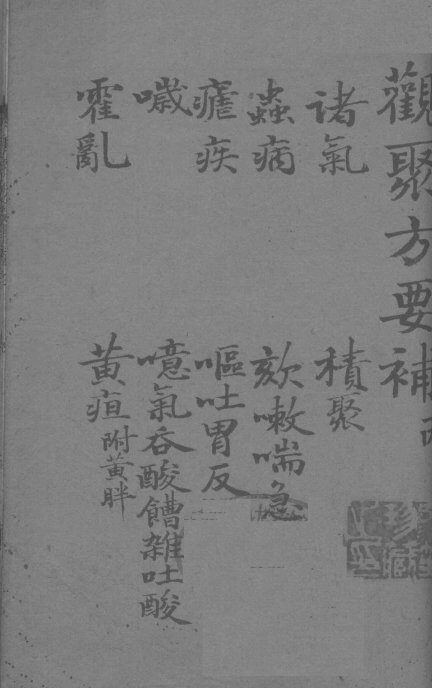 觀聚方要補
諸氣　積聚
蟲病　欬嗽喘急
瘧疾　嘔吐胃反
噦　噫氣吞酸雜吐酸
霍亂　黄疸附黄胖